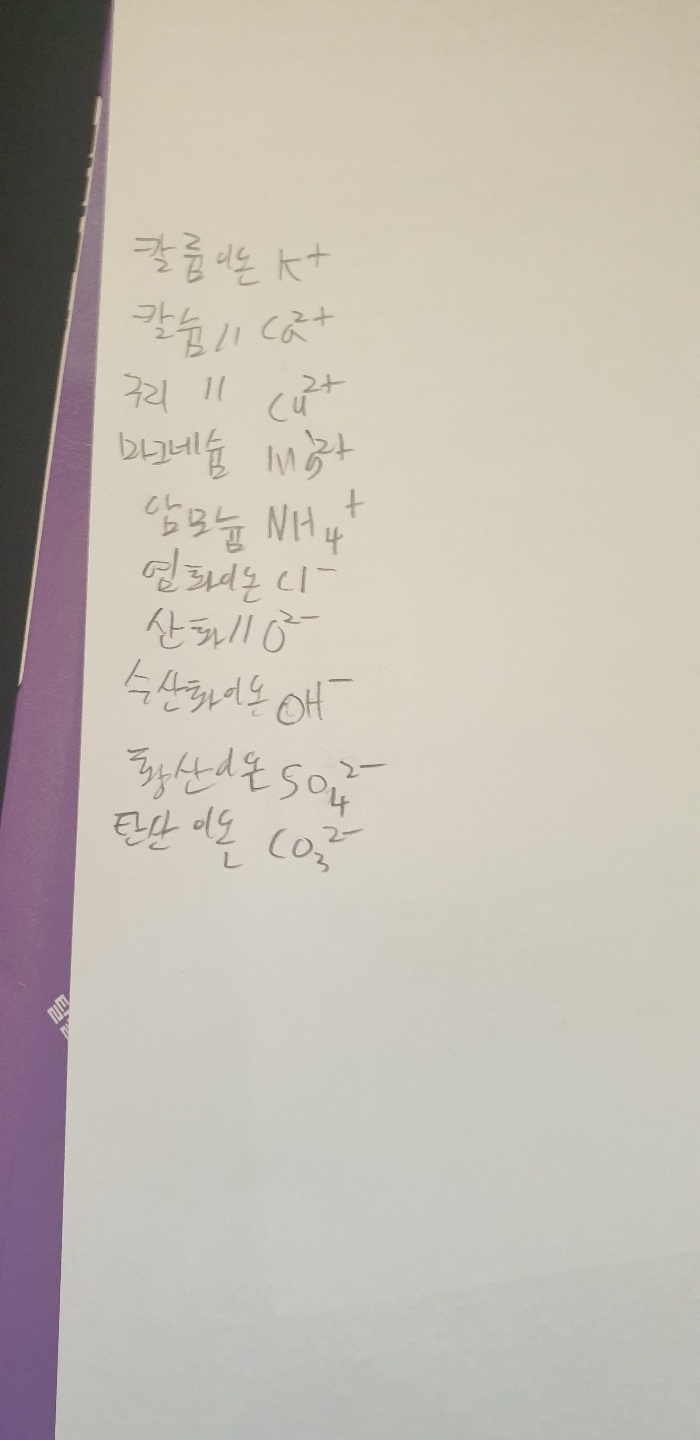 칼륨이온 K⁺
칼슘 〃 Ca²⁺
구리 〃 Cu²⁺
마그네슘 Mg²⁺
암모늄 NH₄⁺
염화이온 Cl⁻
산화 〃 O²⁻
수산화이온 OH⁻
황산이온 SO₄²⁻
탄산 이온 CO₃²⁻